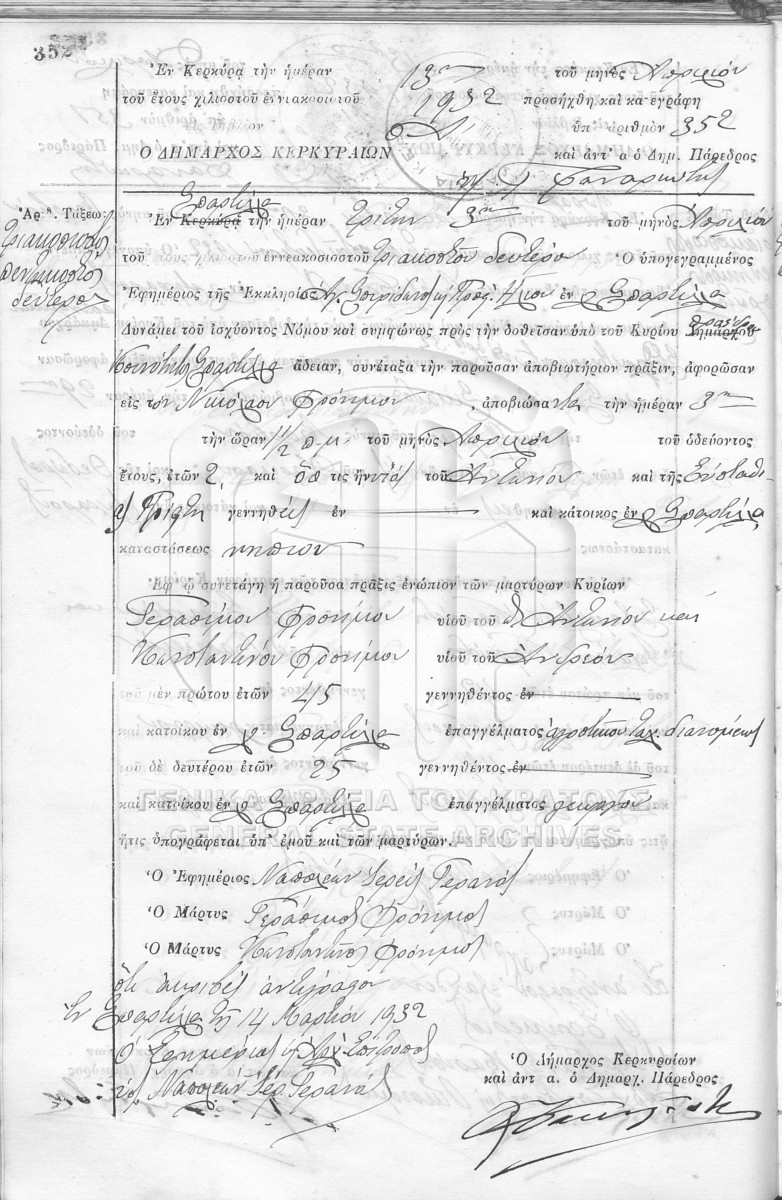 352
Ἐν Κερκύρᾳ τὴν ἡμέραν 13ην τοῦ μηνὸς Ἀπριλίου
τοῦ ἔτους χιλιοστοῦ ἐννιακοσιοστοῦ 1932 προσήχθη καὶ κατεγράφη
εἰς τιβλίον ὑπ' ἀριθμὸν 352
Ο ΔΗΜΑΡΧΟΣ ΚΕΡΚΥΡΑΙΩΝ καὶ ἀντ' α ὁ Δημ. Πάρεδρος
Ἀρ. Τάξεως
τριακοστὸς
πεντηκοστὸς
δεύτερος
Σπαρτίλλᾳ
Ἐν Κερκύρᾳ τὴν ἡμέραν τρίτην 3ην τοῦ μηνὸς Ἀπριλίου
τοῦ ἐννεακοσιοστοῦ τριακοστοῦ δευτέρου Ὁ ὑπογεγραμμένος
Ἐφημέριος τῆς Ἐκκλησίας Ἁγ. Σπυρίδωνος ἐν χ. Σπαρτίλλᾳ
Δυνάμει τοῦ ἰσχύοντος Νόμου καὶ συμφώνως πρὸς τὴν δοθεῖσαν ὑπὸ τοῦ Κυρίου Δημάρχου
Κοινότητος Σπαρτίλλα ἄδειαν, συνέταξα τὴν παροῦσαν ἀποβιωτήριον πρᾶξιν, ἀφορῶσαν
εἰς τὸν Νικόλαον Φρόνιμον, ἀποβιώσαντα τὴν ἡμέραν 3ην
τὴν ὥραν 11/2 π.μ. τοῦ μηνὸς Ἀπριλίου τοῦ ὁδεύοντος
ἔτους, ἐτῶν 2, καὶ ὅστις ἦν υἱὸς τοῦ Ἀντωνίου καὶ τῆς Εὐσταθί-
ας γεννηθεὶς ἐν καὶ κάτοικος ἐν χ. Σπαρτίλλᾳ
καταστάσεως νήπιον
Ἐφ' ᾧ συνετάγη ἡ παροῦσα πρᾶξις ἐνώπιον τῶν μαρτύρων Κυρίων
Γερασίμου Φρονίμου υἱοῦ τοῦ Ἀντωνίου καὶ
Κωνσταντίνου Φρονίμου υἱοῦ τοῦ Ἀνδρέου
τοῦ μὲν πρώτου ἐτῶν 45 γεννηθέντος ἐν
κ κατοίκου ἐν χ. Σπαρτίλλᾳ ἐπαγγέλματος ἀγροτικοῦ ταχ. διανομέως
τοῦ δὲ δευτέρου ἐτῶν 25 γεννηθέντος ἐν
καὶ κατοίκου ἐν χ. Σπαρτίλλᾳ ἐπαγγέλματος γεωργοῦ
ΓΕΝΙΚΑ ΑΡΧΕΙΑ ΤΟΥ ΚΡΑΤΟΥΣ
GENERAL STATE ARCHIVES
ἥτις ὑπογράφεται ὑπ' ἐμοῦ καὶ τῶν μαρτύρων.
Ὁ Ἐφημέριος Ναπολέων Ἱερεὺς
Ὁ Μάρτυς Γεράσιμος Φρόνιμος
Ὁ Μάρτυς Κωνσταντῖνος Φρόνιμος
ὅτι ἀκριβὲς ἀντίγραφον
Ἐν Σπαρτίλλᾳ τῇ 14 Μαρτίου 1932
Ὁ Ἐφημέριος
Ναπολέων Ἱερ.
Ὁ Δήμαρχος Κερκυραίων
καὶ ἀντ α. ὁ Δημαρχ. Πάρεδρος